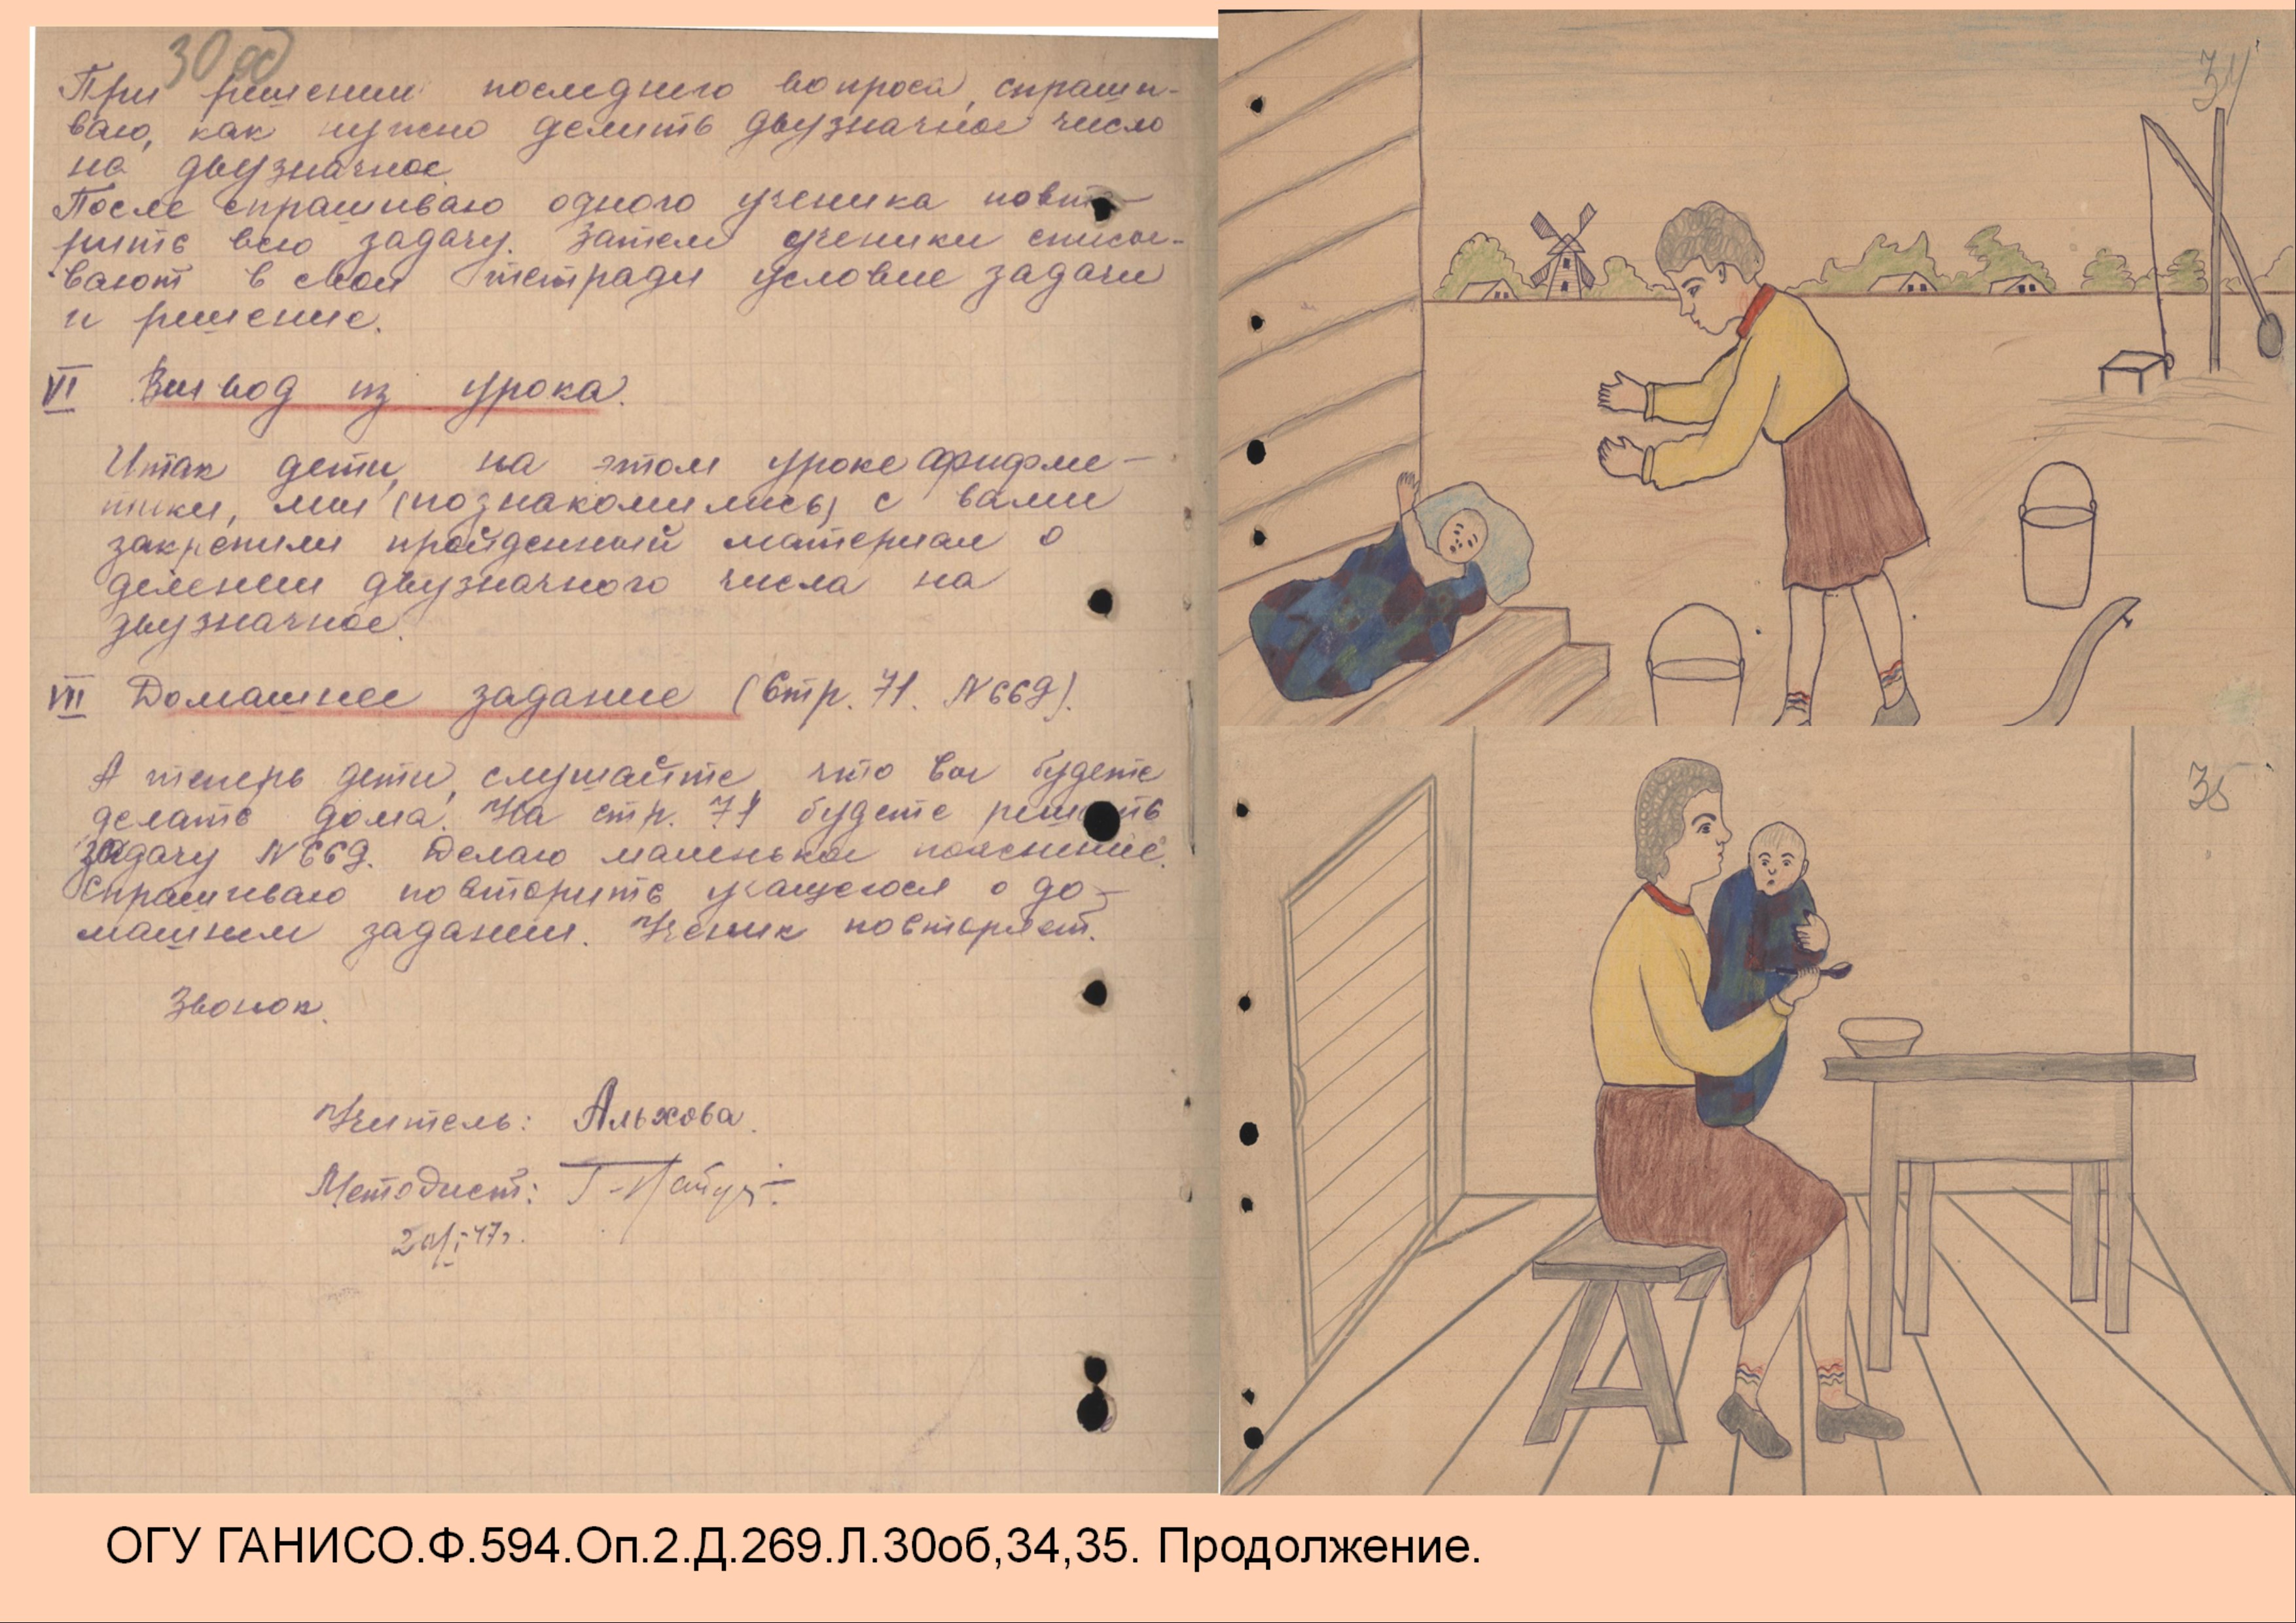 30 об
При решении последнего вопроса, спраши-
ваю, как нужно делить двузначное число
на двузначное.
После спрашиваю одного ученика повто-
рить всю задачу. Затем ученики списы-
вают в свои тетради условие задачи
и решение.
VI Вывод из урока.
Итак дети, на этом уроке арифме-
тики, мы (познакомились) с вами
закрепили пройденный материал о
делении двузначного числа на
двузначное.
VII Домашнее задание (Стр. 71. N 669).
А теперь дети, слушайте что вы будете
делать дома. На стр. 71 будете решать
задачу N 669. Делаю маленькое пояснение.
Спрашиваю повторить учащегося о до-
машнем задании. Ученик повторяет.
Звонок.
Учитель: Альхова.
Методист:
47г.
34
35
ОГУ ГАНИСО.Ф.594.Оп.2.Д.269.Л.30об,34,35. Продолжение.